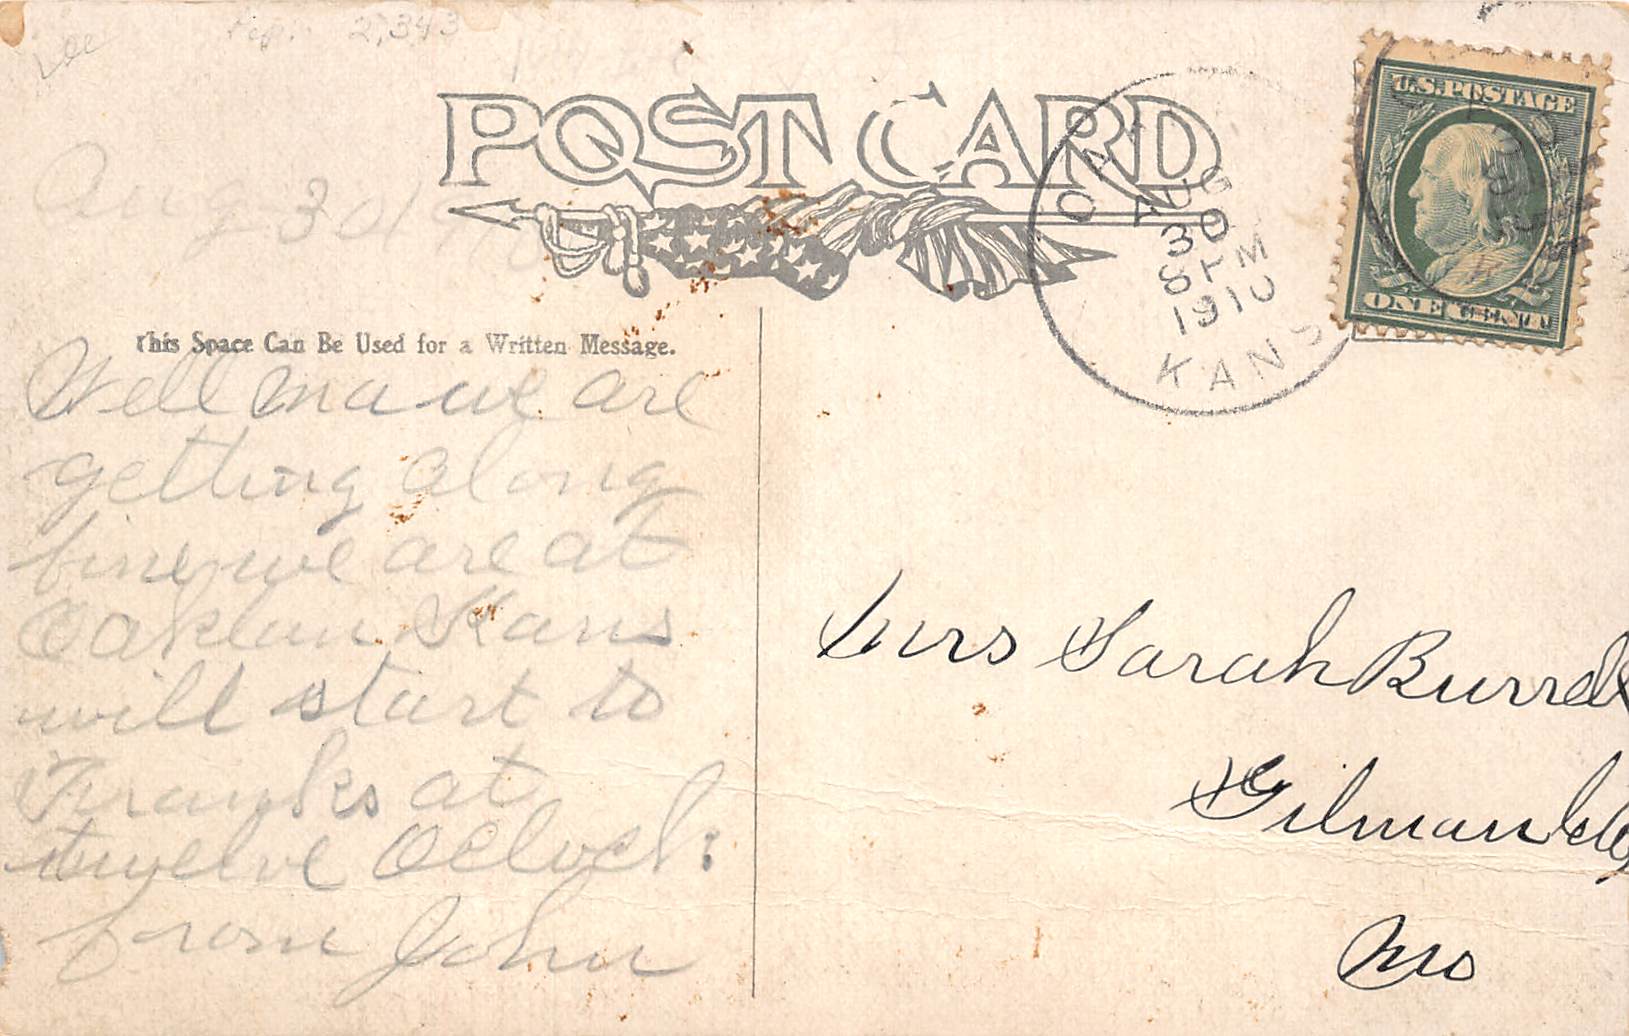 Pop. 2,343
POST CARD
Aug 30 1910
This Space Can Be Used for a Written Message.
Well Ma we are
getting along
fine, we are at
Oaklan Kans
will start to
Franks at
twelve Oclock
from John
AUG
30
8 PM
1910
KANS
U.S. POSTAGE
ONE CENT
Mrs Sarah Burrell
Gilman City
Mo